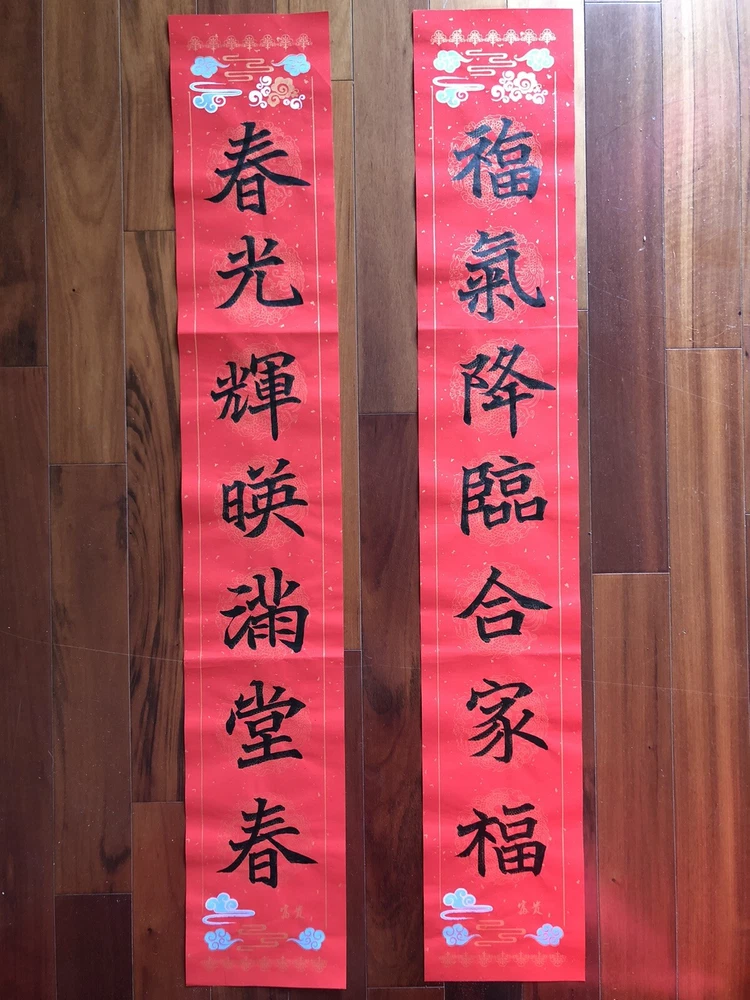 福氣降臨合家福
春光輝暎滿堂春